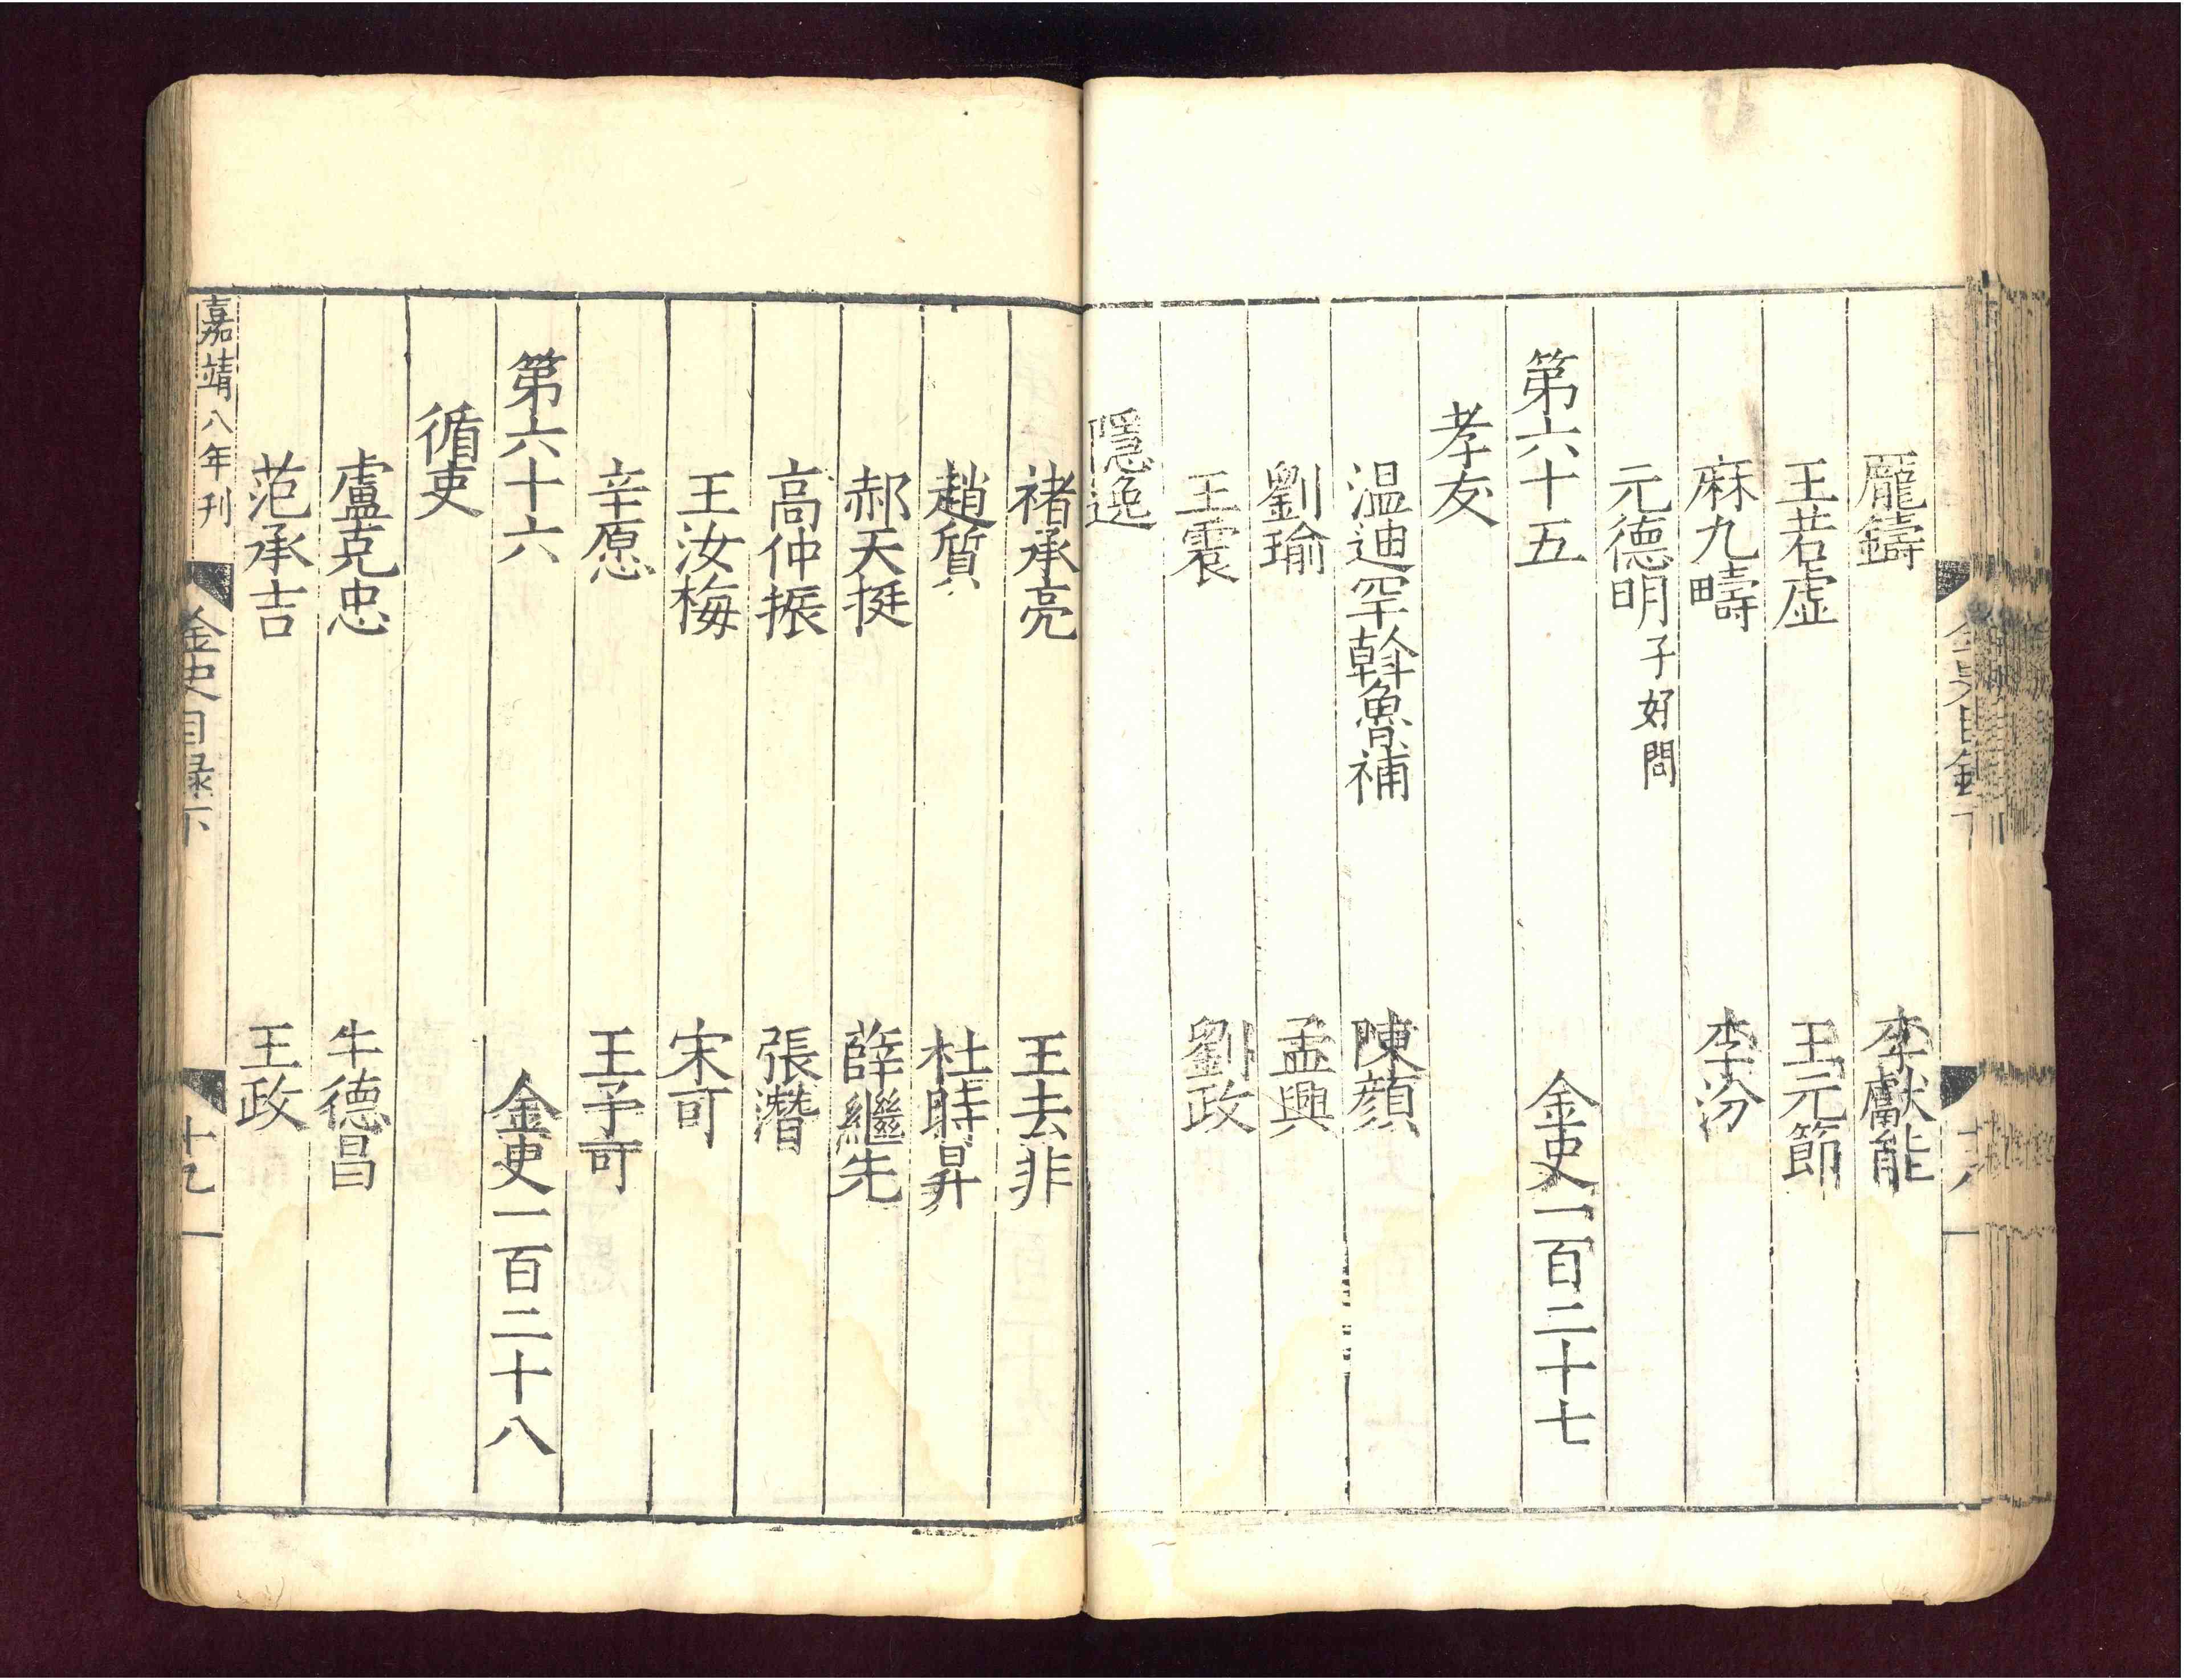 龎鑄 李獻能
王若虛 王元節
麻九疇 李汾
元德明子好問
第六十五 金史一百二十七
孝友
温迪罕斡魯補 陳顔
劉瑜 孟興
王震 劉政
隱逸
禇承亮 王去非
趙質 杜時昇
郝天挺 薛繼先
高仲振 張潛
王汝梅 宋可
辛愿 王予可
第六十六 金史一百二十八
循吏
盧克忠 牛德昌
范承吉 王政
嘉靖八年刊 金史目録下 十九